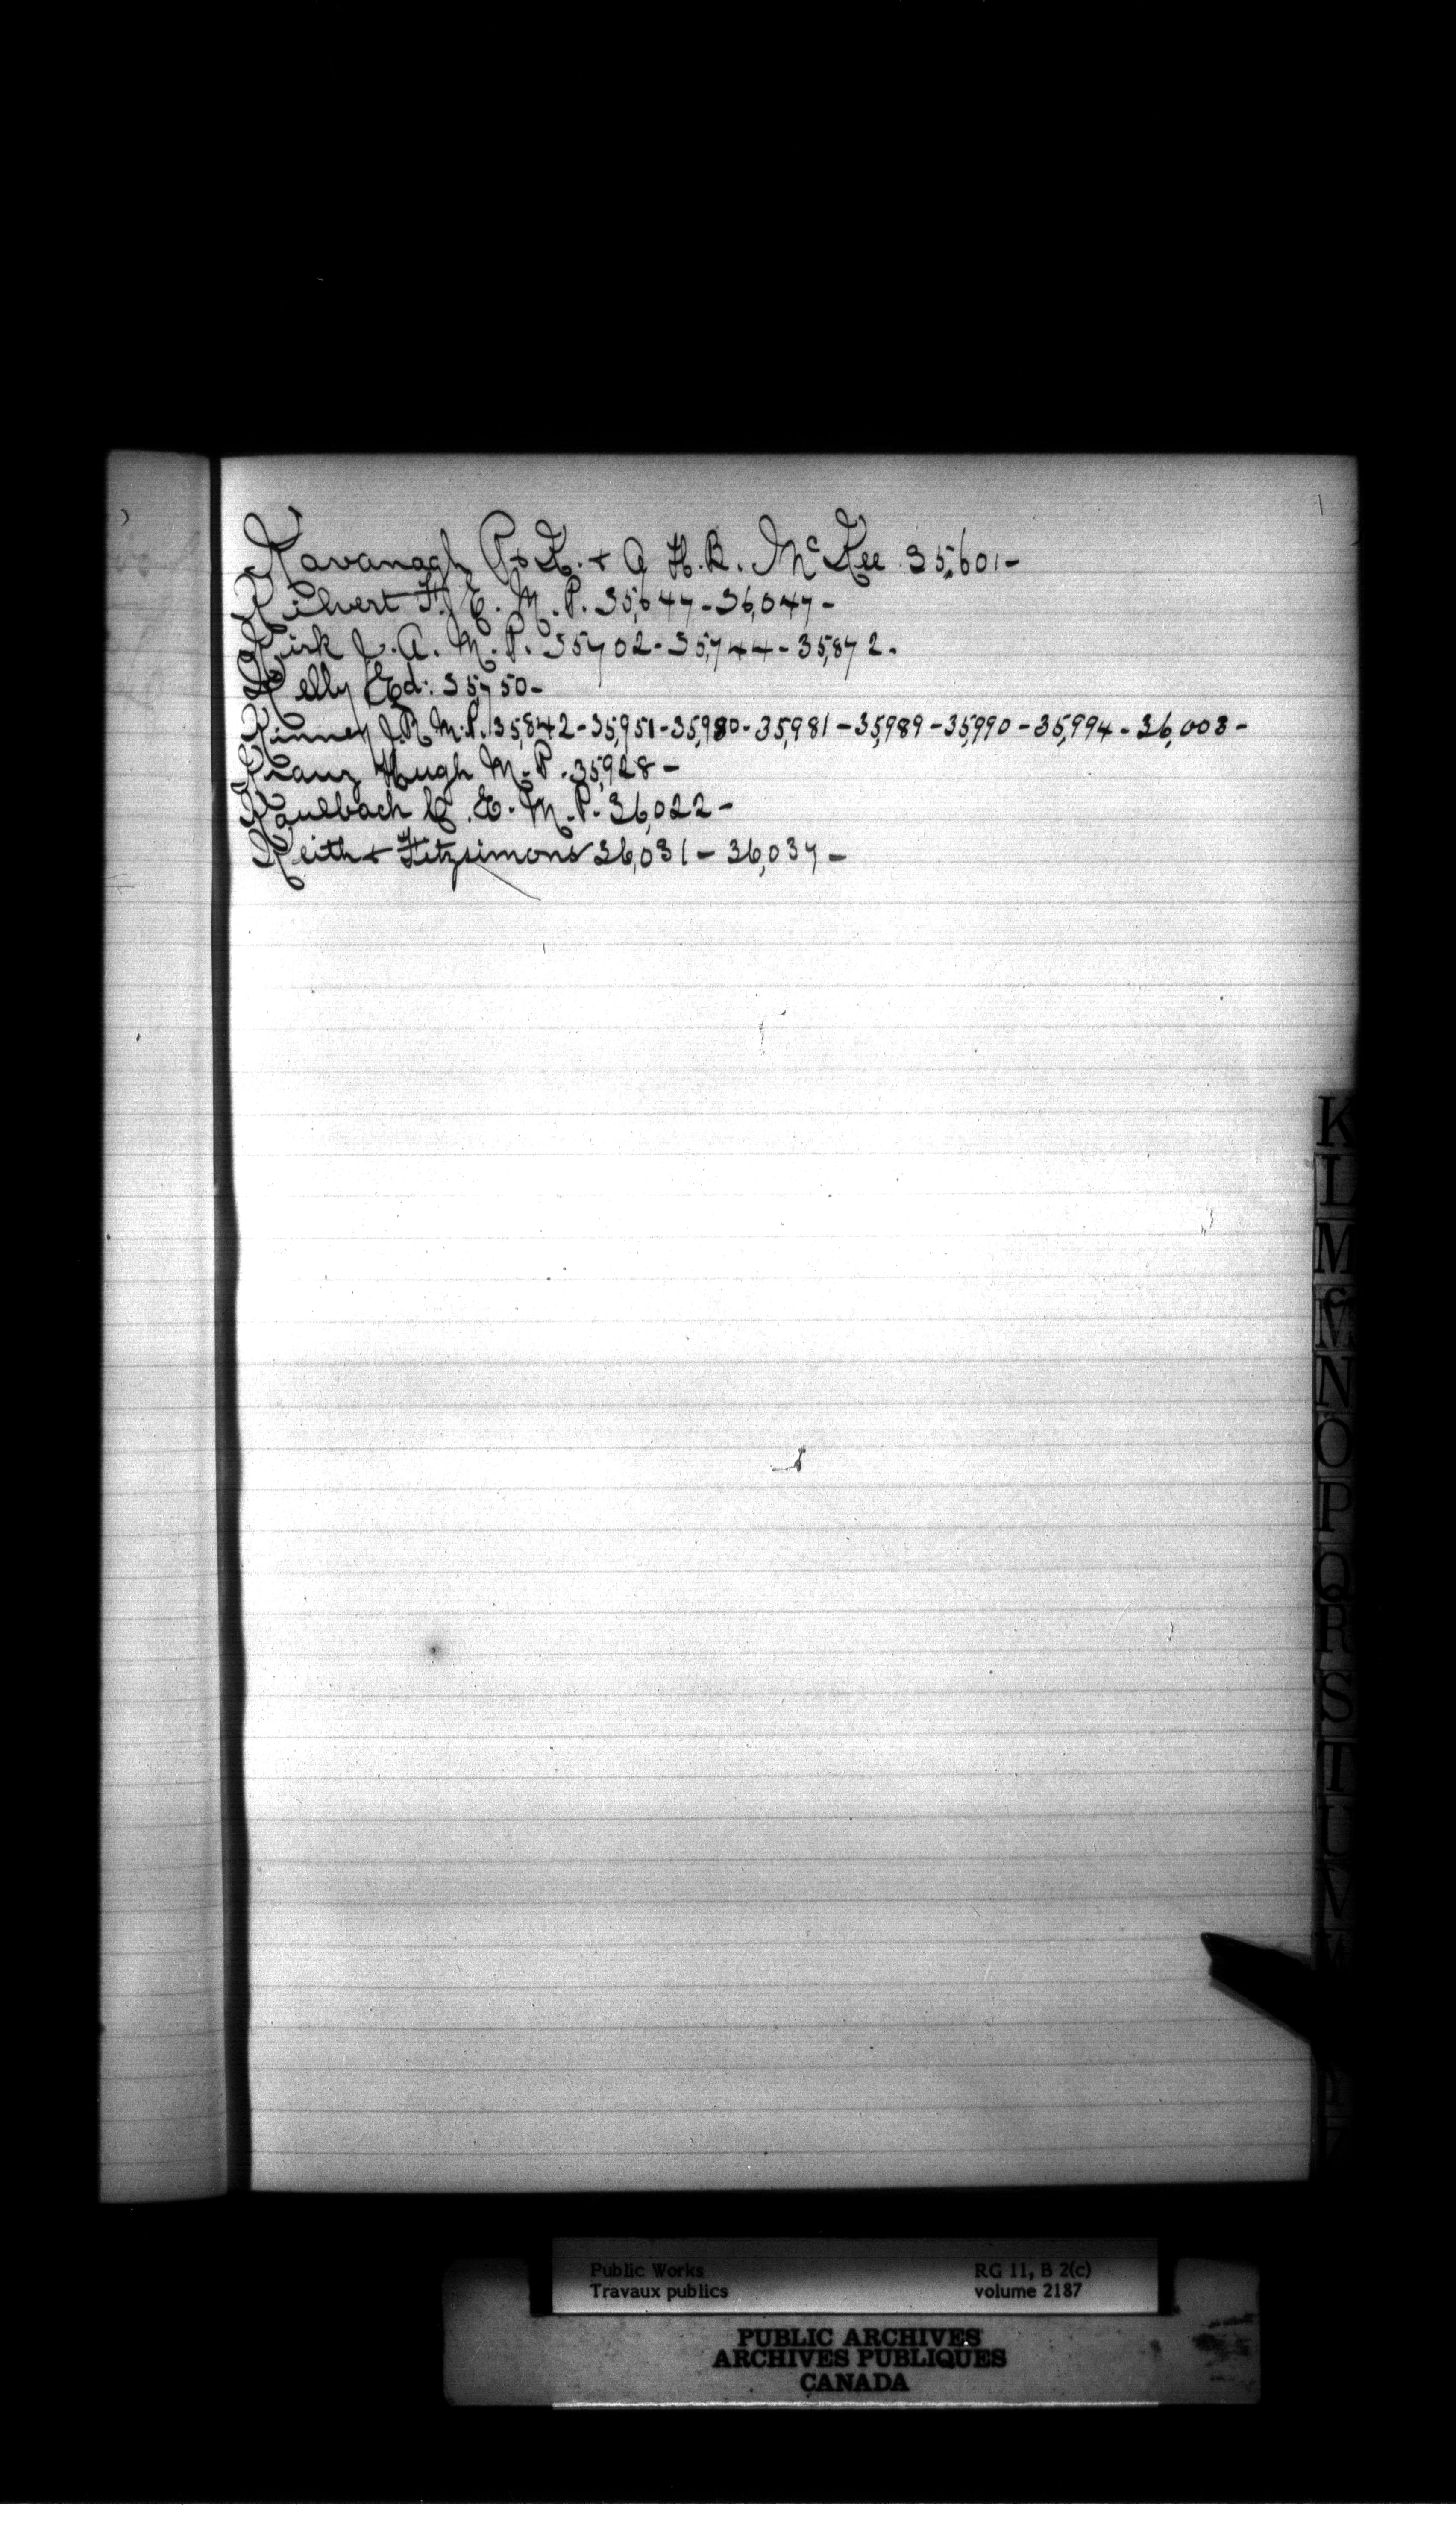 Kavanagh P. & K. + A. H. R. McKee 35,601-
Kilvert F. E. M. P. 35,647-36,047-
Kirk J. A. M. P. 35702-35,744-35,872.
Kelly Ed: 35,750-
Kinney J. R. M. P. 35,842-35,951-35,980-35,981-35,989-35,990-35,994-36,003-
Kranz Hugh M. P. 35,928-
Kaulbach C. E. M. P. 36,022-
Keith + Fitzsimons 36,031-36,037-
K
L
M
Mc
N
O
P
Q
R
S
T
U
V
W
Public Works
Travaux publics
RG 11, B 2(c)
volume 2187
PUBLIC ARCHIVES
ARCHIVES PUBLIQUES
CANADA